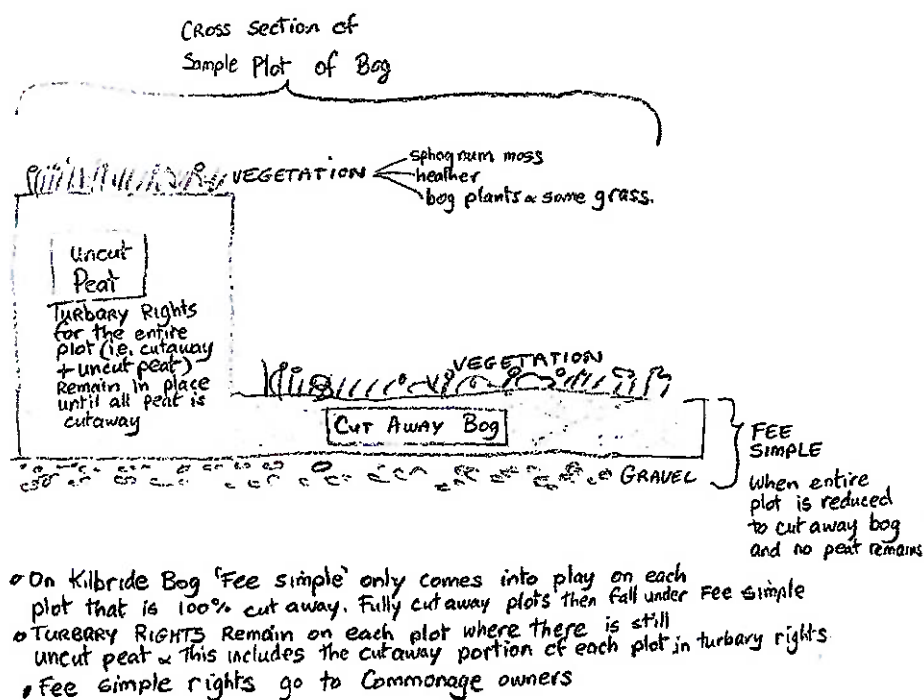 Cross Section of
Sample Plot of Bog
VEGETATION
sphagnum moss
heather
bog plants & some grass.
Uncut
Peat
TURBARY RIGHTS
for the entire
plot (i.e. cutaway
+ uncut peat)
Remain in place
until all peat is
cutaway
VEGETATION
CUT AWAY BOG
GRAVEL
FEE
SIMPLE
When entire
plot is reduced
to cut away bog
and no peat remains
On Kilbride Bog 'Fee simple' only comes into play on each
plot that is 100% cut away. Fully cutaway plots then fall under Fee simple
TURBARY RIGHTS Remain on each plot where there is still
uncut peat & This includes the cutaway portion of each plot in turbary rights
Fee simple rights go to Commonage owners